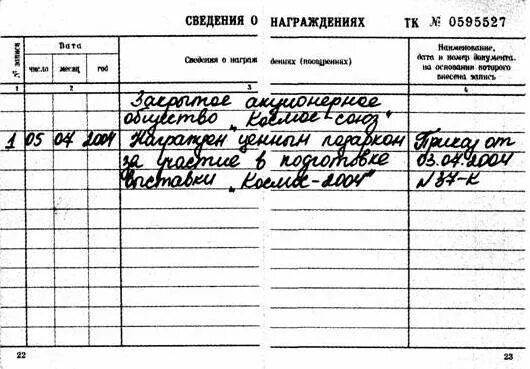 СВЕДЕНИЯ О НАГРАЖДЕНИЯХ ТК № 0595527
№ записи
Дата
число месяц год
Сведения о награждениях (поощрениях)
Наименование,
дата и номер документа,
на основании которого
внесена запись
1 2 3 4
Закрытое акционерное
общество „Космос-союз"
1 05 04 2004 Награжден ценным подарком Приказ от
за участие в подготовке 03.04.2004
выставки „Космос-2004" N37-К
22 23